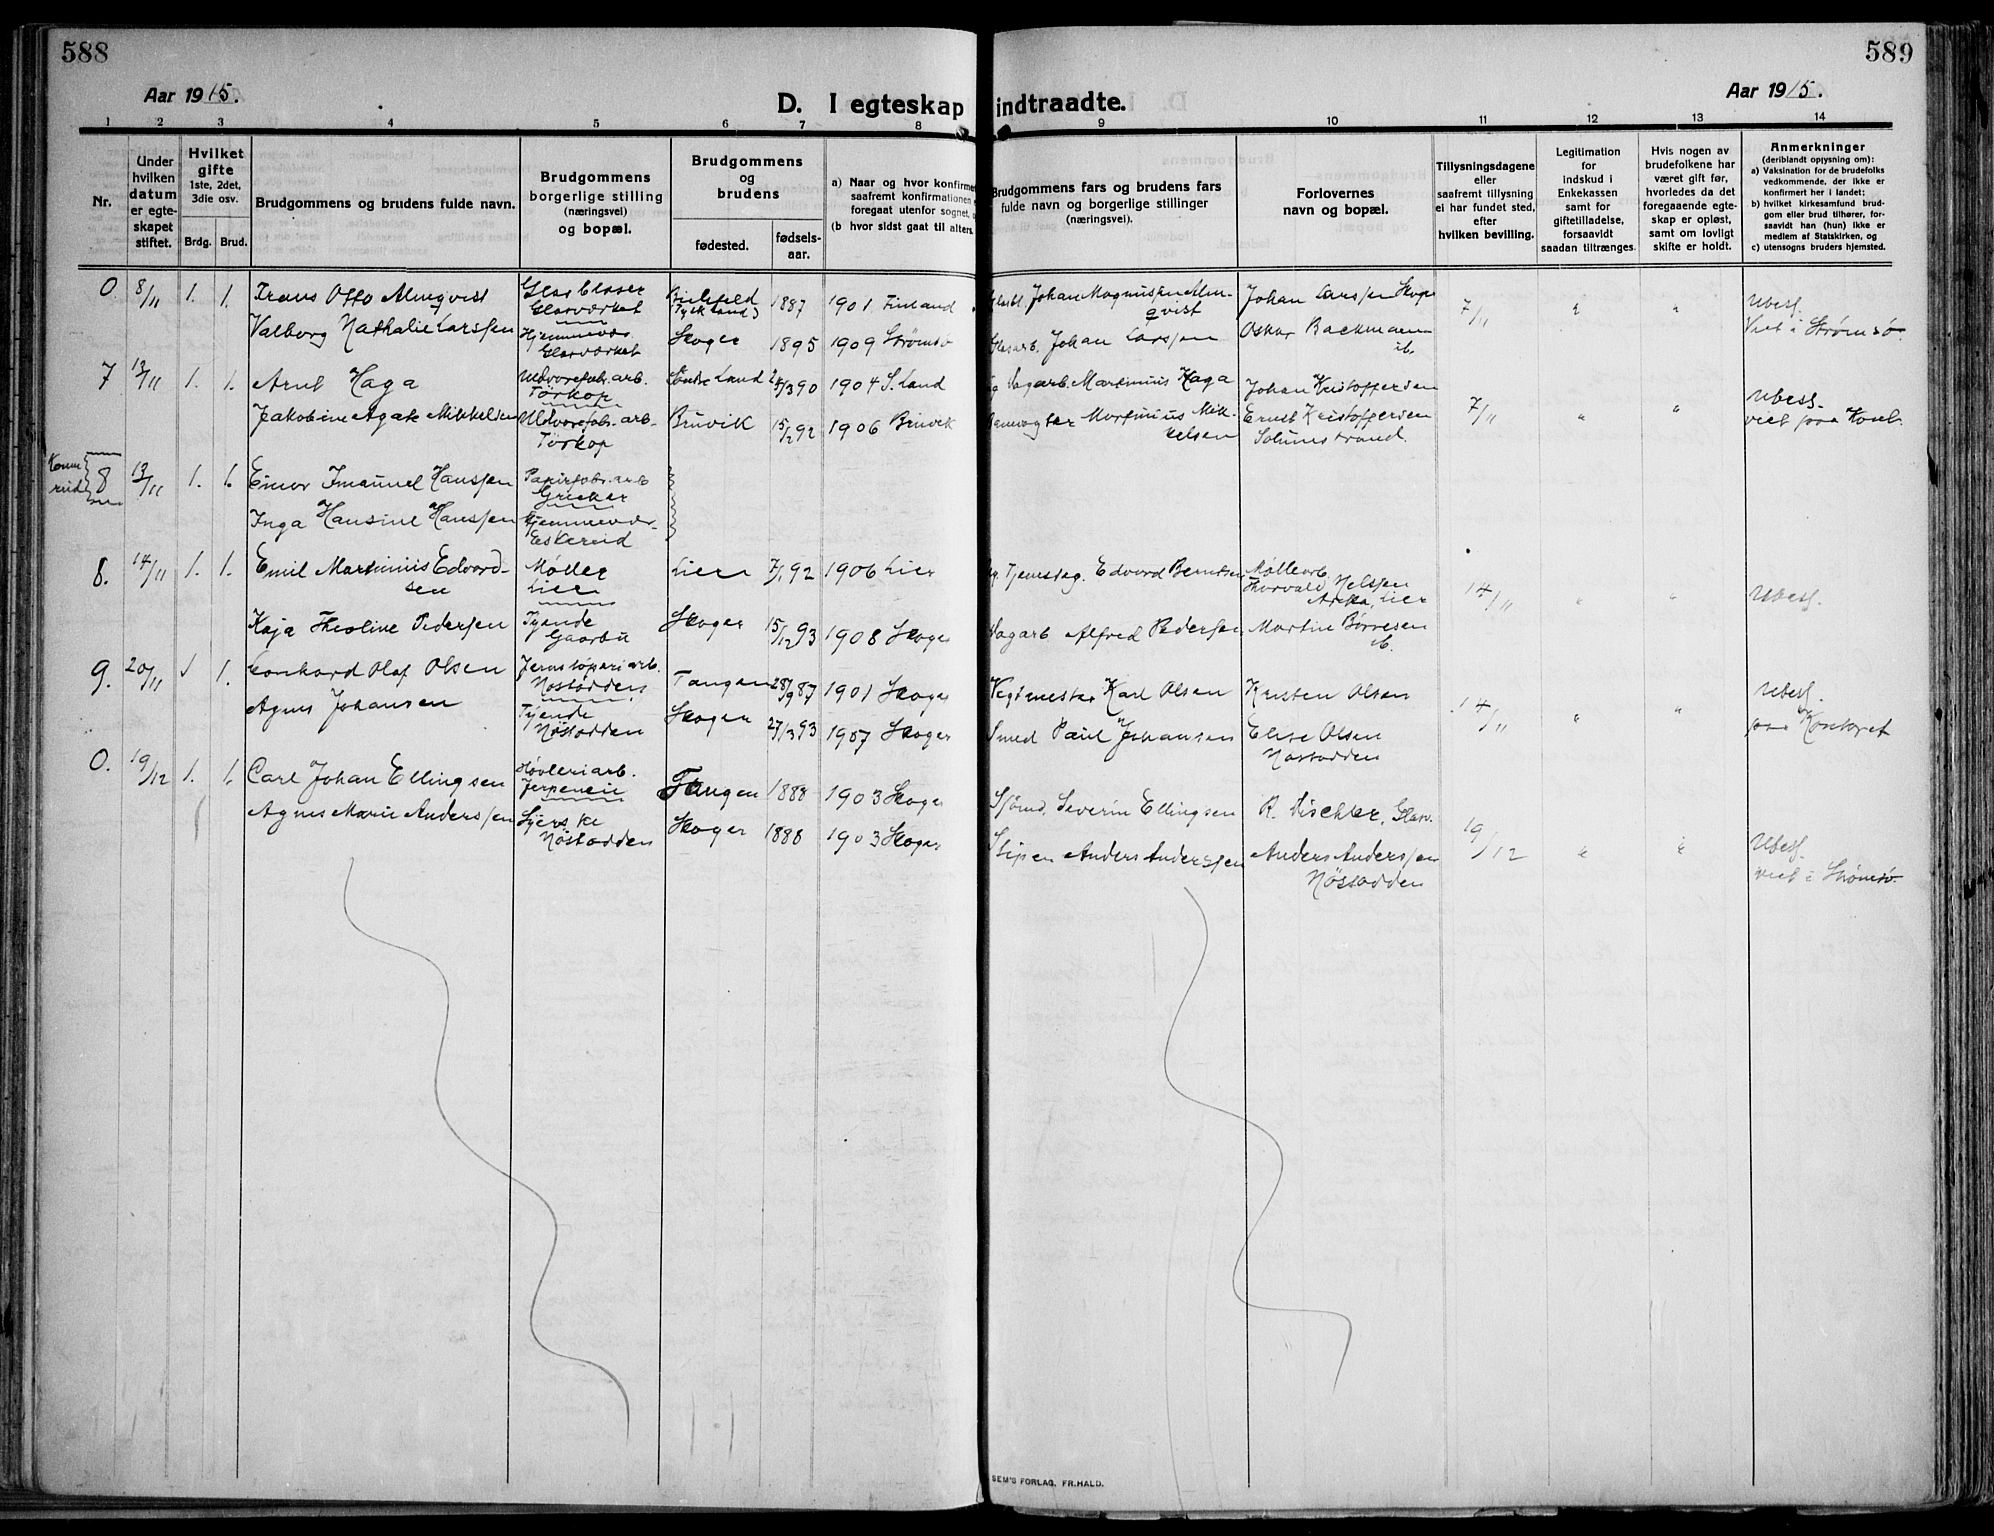 588
589
Aar 1915.
D. I egteskap indtraadte.
Aar 1915.
1 2 3 4 5 6 7 8 9 10 11 12 13 14
Nr.
Under hvilken datum er egteskapet stiftet.
Hvilket gifte 1ste, 2det, 3die osv.
Brdg. Brud.
Brudgommens og brudens fulde navn.
Brudgommens borgerlige stilling (næringsvei) og bopæl.
Brudgommens og brudens
fødested. fødselsaar.
a) Naar og hvor konfirmert
saafremt konfirmationen
foregaat utenfor sognet,
(b hvor sidst gaat til alters.
Brudgommens fars og brudens fars
fulde navn og borgerlige stillinger
(næringsvei).
Forlovernes
navn og bopæl.
Tillysningsdagene
eller
saafremt tillysning
ei har fundet sted,
efter
hvilken bevilling.
Legitimation
for
indskud i
Enkekassen
samt for
giftetilladelse,
forsaavidt
saadan tiltrænges.
Hvis nogen av
brudefolkene har
været gift før,
hvorledes da det
foregaaende egte-
skap er opløst,
samt om lovligt
skifte er holdt.
Anmerkninger
(deriblandt oplysning om):
a) Vaksination for de brudefolks
vedkommende, der ikke er
konfirmert her i landet;
b) hvilket kirkesamfund brud-
gom eller brud tilhører, for-
saavidt han (hun) ikke er
medlem af Statskirken, og
c) utensogns bruders hjemsted.
0 8/11 1. 1. Frans Otto Almqvist Glasblaser Glasværket Bielefeld Tyskland 1887 1901 Finland Johan Magnussen Almqvist Johan Larssen Skoger 7/11 " " Ubesl.
Valborg Nathalie Larssen Hjemmevær. Glasværket Skoger 1895 1909 Strømsø Glasarb. Johan Larssen Oskar Backmann ib. Viet i Strømsø
7 13/11 1. 1. Arnt Haga Uldvarefab. arb. Tørkop Søndre Land 1904 S. Land Sagarb. Martinius Haga Johan Kristoffersen 7/11 " " Ubesl.
Jakobine Agate Mikkelsen Uldvarefab. arb. Tørkop Bruvik 15/2 92 1906 Bruvik Martinius Mikkelsen Ernst Kristoffersen Solumstrand. viet paa Kont.
8 13/11 1. 1. Einar Imanuel Hanssen Papirfabr. arb
Inga Hansine Hanssen Hjemmevær. Eskerud
8. 14/11 1. 1. Emil Martinius Edvardsen Møller Lier Lier 7/1 92 1906 Lier Edvard Berntsen Møllearb. Thorvald Nelssen Lier 14/11 " " Ubesl.
Kaja Theoline Pedersen Tjende Gaarbu Skoger 15/12 93 1908 Skoger Sagarb Alfred Pedersen Martin Børresen ib.
9. 20/11 1 1. Leonhard Olaf Olsen Jernstøperiarb. Nøstodden Tangen 28/9 87 1901 Skoger Vegtmester Karl Olsen Karsten Olsen 14/11 " " Ubesl.
Agnes Johansen Tjende Nøstodden Skoger 27/3 93 1907 Skoger Smed Paul Johansen Elise Olsen Nøstodden paa Kontoret
0. 19/12 1. 1. Carl Johan Ellingsen Høvleriarb. Tangen 1888 1903 Skoger Sjømd. Severin Ellingsen R. Tischler, Glasv. 19/12 " " Ubesl.
Agnes Marie Anderssen Syerske Nøstodden Skoger 1888 1903 Skoger Anders Anderssen Anders Anderssen Nøstodden viet i Strømsø.
SEM'S FORLAG, FR. HALD.